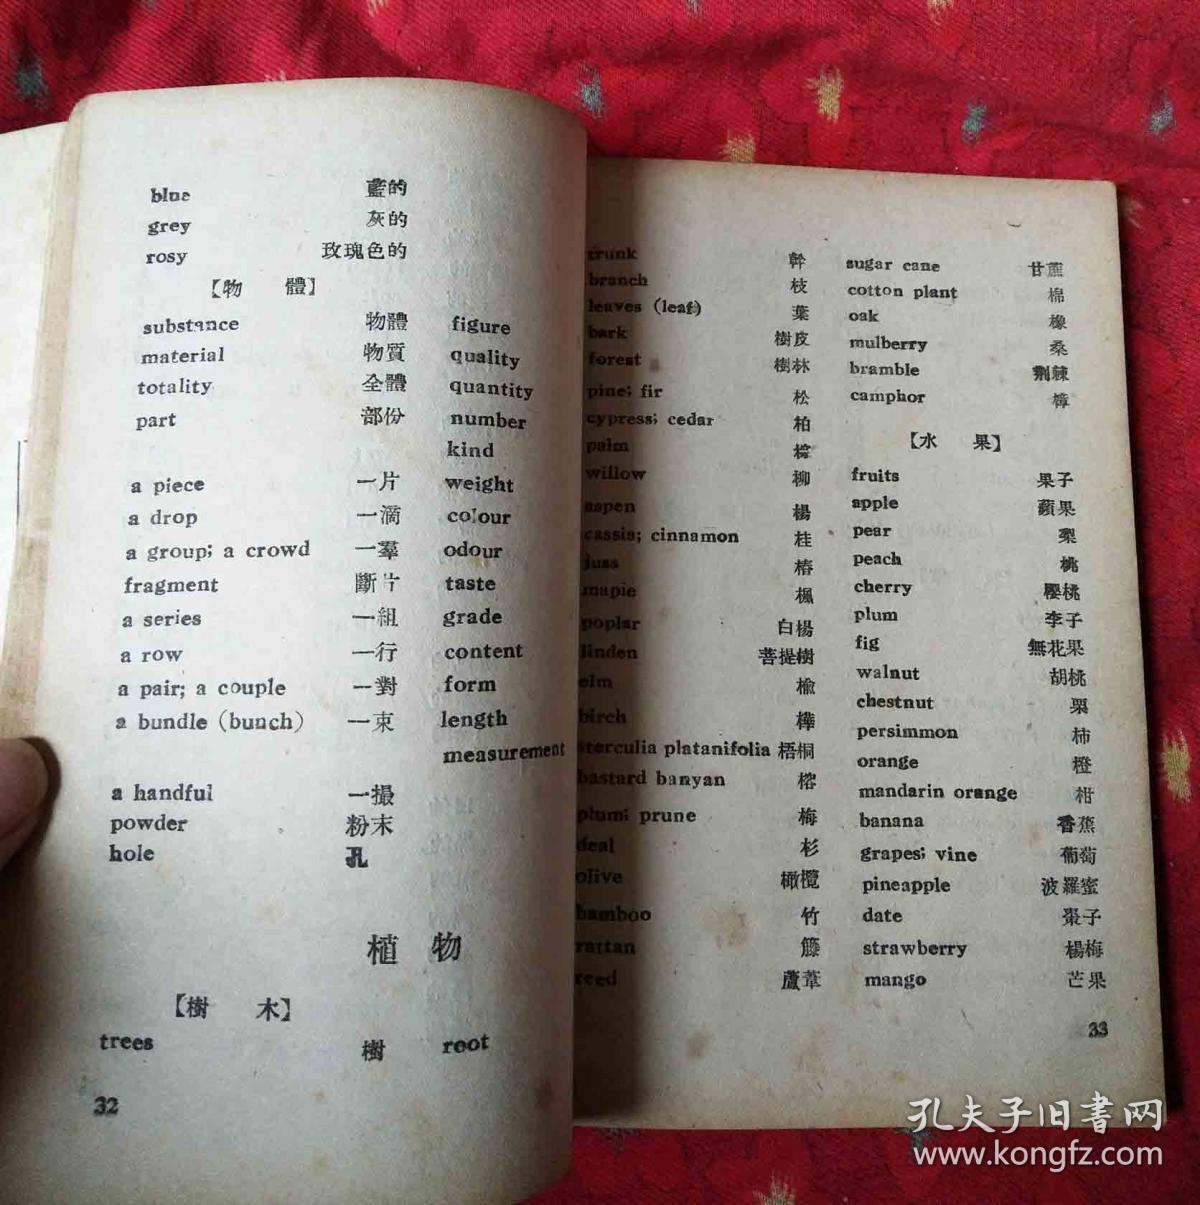 blue 藍的
grey 灰的
rosy 玫瑰色的
【物 體】
substance 物體
material 物質
totality 全體
part 部份
a piece 一片
a drop 一滴
a group; a crowd 一羣
fragment 斷片
a series 一組
a row 一行
a pair; a couple 一對
a bundle (bunch) 一束
a handful 一撮
powder 粉末
hole 孔
figure
quality
quantity
number
kind
weight
colour
odour
taste
grade
content
form
length
measurement
植 物
【樹 木】
trees 樹 root
32
trunk 幹
branch 枝
leaves (leaf) 葉
bark 樹皮
forest 樹林
pine; fir 松
cypress; cedar 柏
palm
willow 柳
aspen 楊
cassia; cinnamon 桂
juss 椿
maple 楓
poplar 白楊
linden 菩提樹
elm 榆
birch 樺
sterculia platanifolia 梧桐
bastard banyan 榕
plum; prune 梅
deal 杉
olive 橄欖
bamboo 竹
rattan 籐
reed 蘆葦
sugar cane 甘蔗
cotton plant 棉
oak 橡
mulberry 桑
bramble 荆棘
camphor 樟
【水 果】
fruits 果子
apple 蘋果
pear 梨
peach 桃
cherry 櫻桃
plum 李子
fig 無花果
walnut 胡桃
chestnut 栗
persimmon 柿
orange 橙
mandarin orange 柑
banana 香蕉
grapes; vine 葡萄
pineapple 波羅蜜
date 棗子
strawberry 楊梅
mango 芒果
33
孔夫子旧書网
www.kongfz.com